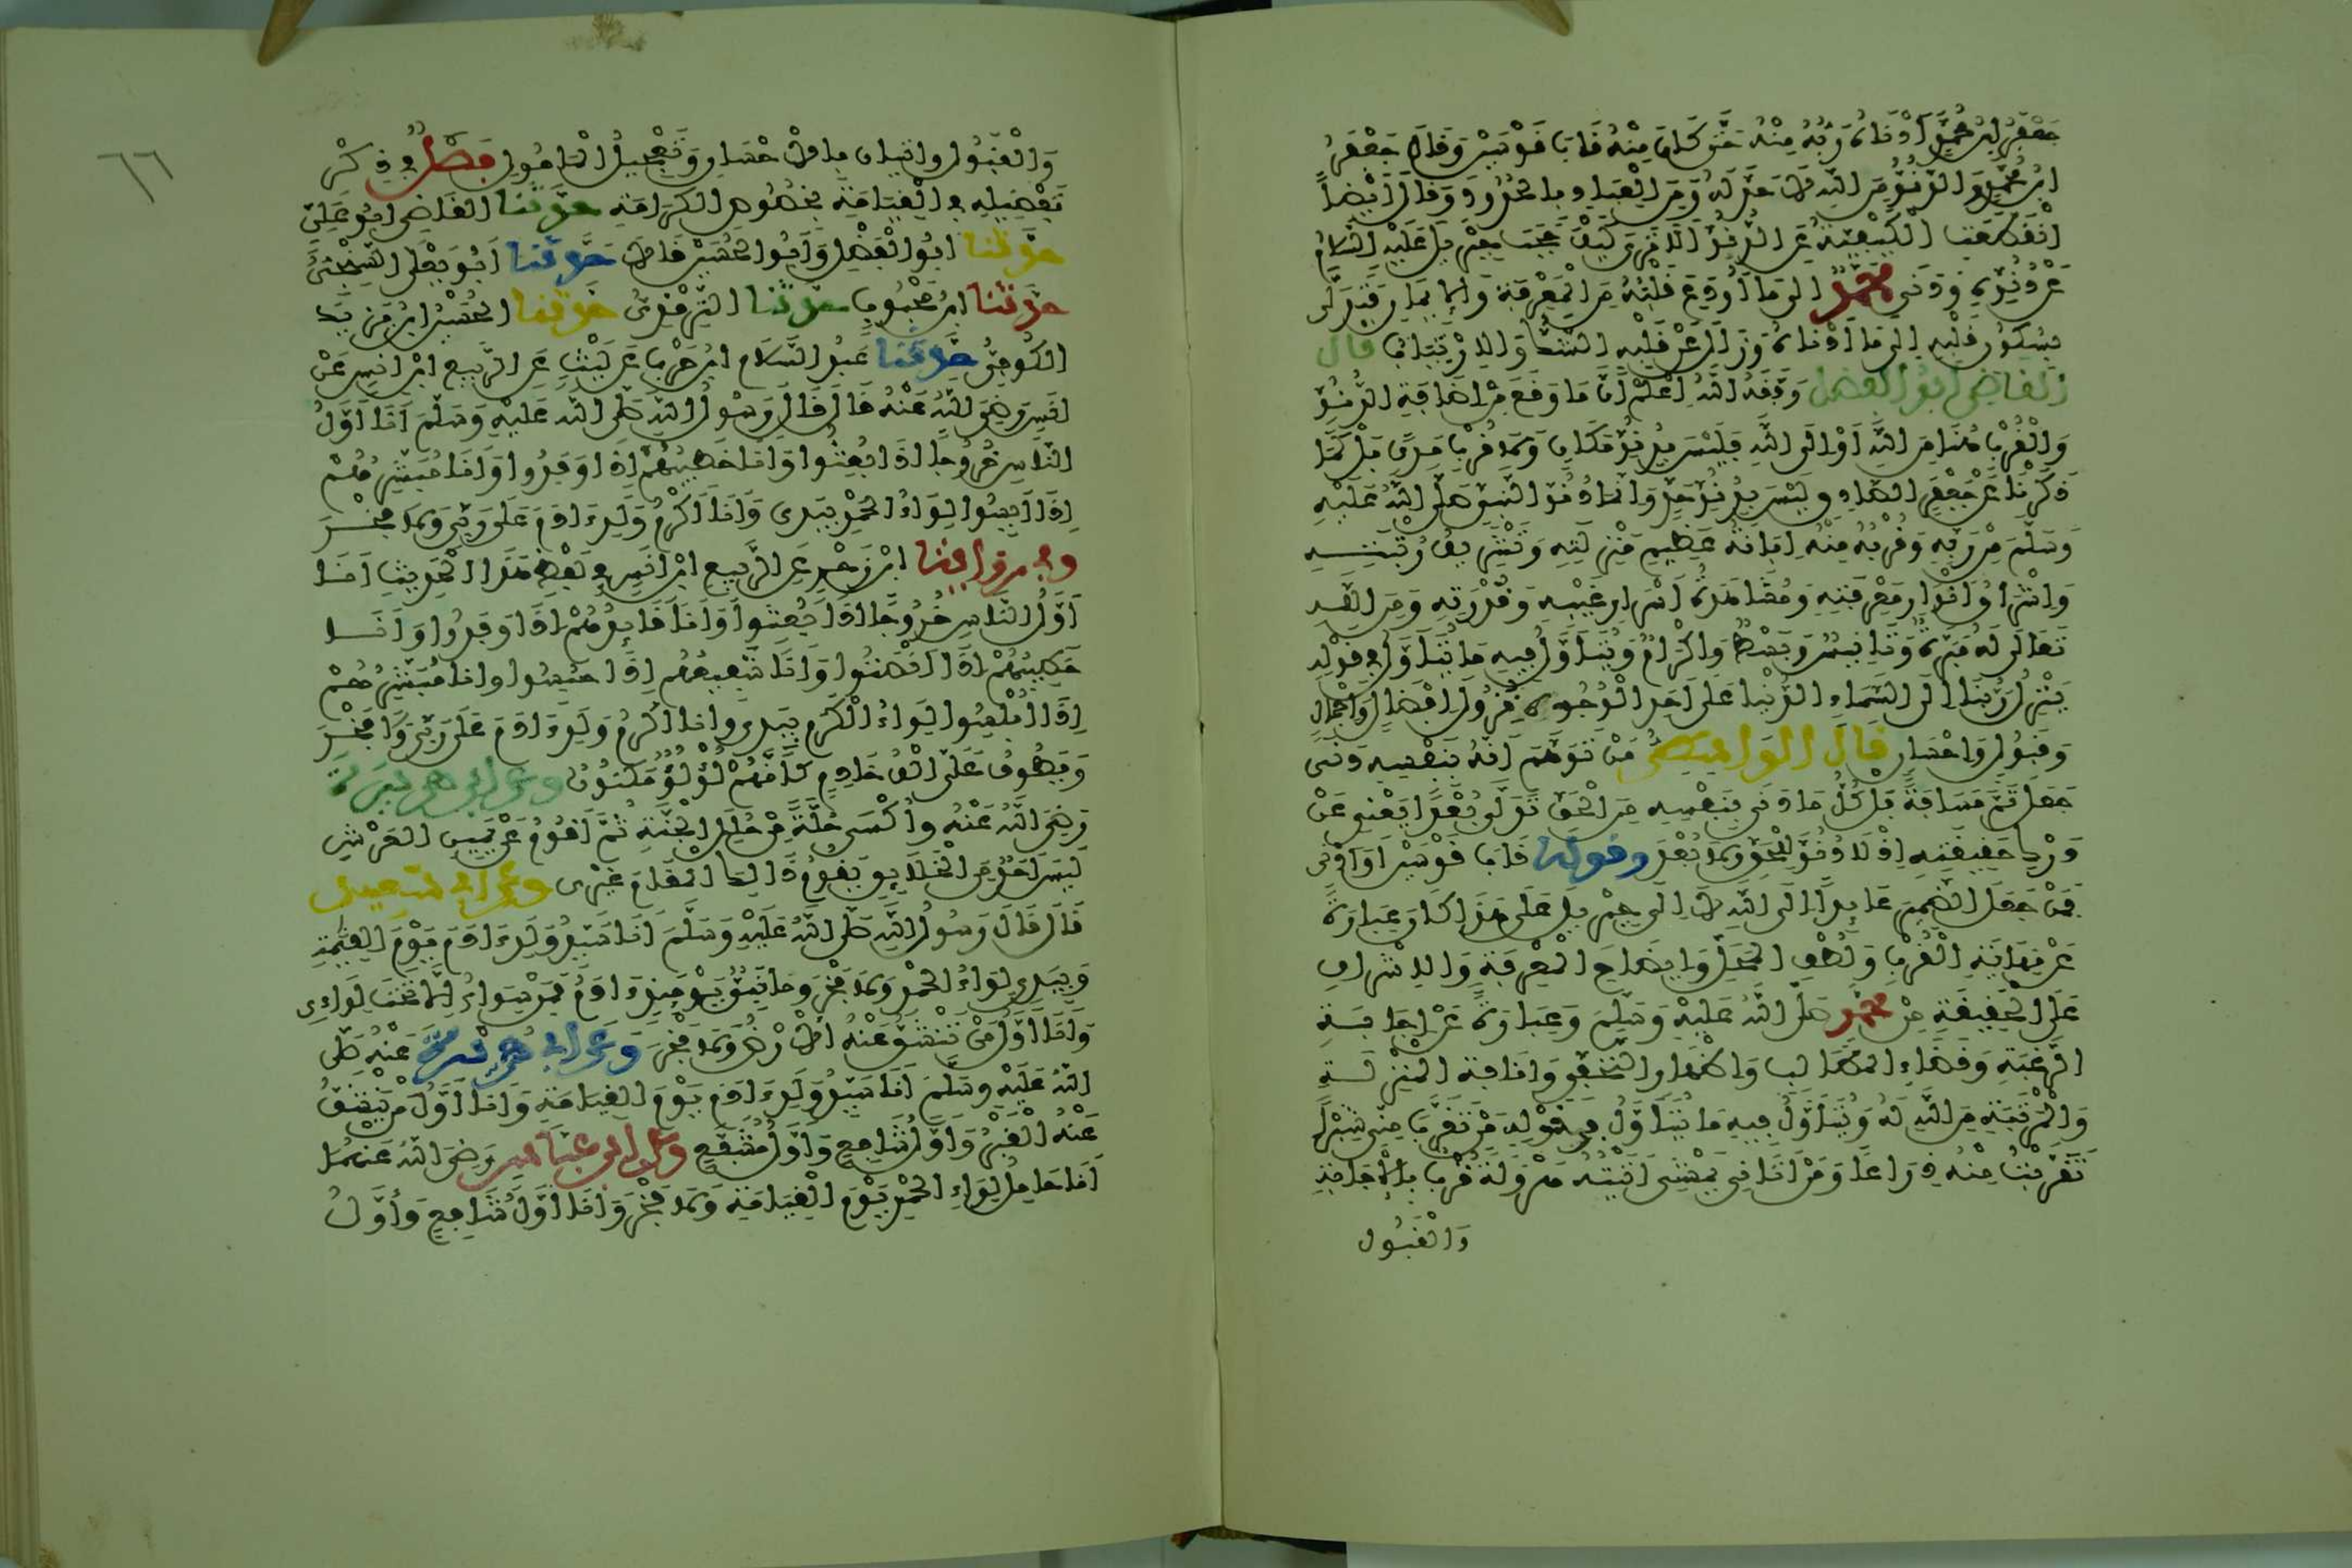 جَعْفَرُ ابْنُ مُحَمَّدٍ أَدْنَاهُ رَبُّهُ مِنْهُ حَتَّى كَانَ مِنْهُ قَابَ قَوْسَيْنِ وَقَالَ جَعْفَرُ
ابْنُ مُحَمَّدٍ وَالدُّنُوُّ مِنَ اللهِ لَا حَدَّ لَهُ وَمِنَ الْعِبَادِ بِالْحُدُودِ وَقَالَ أَيْضاً
انْقَطَعَتِ الْكَيْفِيَّةُ عَنِ الدُّنُوِّ أَلَا تَرَى كَيْفَ حَجَبَ جِبْرِيلَ عَلَيْهِ السَّلَامُ
عَنْ دُنُوِّهِ وَدَنَى مُحَمَّدٌ إِلَى مَا أُودِعَ قَلْبُهُ مِنَ الْمَعْرِفَةِ وَالْإِيمَانِ فَتَدَلَّى
بِسُكُونِ قَلْبِهِ إِلَى مَا أَدْنَاهُ وَزَالَ عَنْ قَلْبِهِ الشَّكُّ وَالِارْتِيَابُ قَالَ
الْقَاضِي أَبُو الْفَضْلِ وَفَّقَهُ اللهُ اعْلَمْ أَنَّ مَا وَقَعَ مِنْ إِضَافَةِ الدُّنُوِّ
وَالْقُرْبِ هُنَا مِنَ اللهِ أَوْ إِلَى اللهِ فَلَيْسَ بِدُنُوِّ مَكَانٍ وَلَا قُرْبِ مَدًى بَلْ كَمَا
ذَكَرْنَا عَنْ جَعْفَرٍ الصَّادِقِ لَيْسَ بِدُنُوِّ حَدٍّ وَإِنَّمَا دُنُوُّ النَّبِيِّ صَلَّى اللهُ عَلَيْهِ
وَسَلَّمَ مِنْ رَبِّهِ وَقُرْبُهُ مِنْهُ إِبَانَةُ عَظِيمِ مَنْزِلَتِهِ وَتَشْرِيفُ رُتْبَتِهِ
وَإِشْرَاقُ أَنْوَارِ مَعْرِفَتِهِ وَمُشَاهَدَةُ أَسْرَارِ غَيْبِهِ وَقُدْرَتِهِ وَمِنَ اللهِ
تَعَالَى لَهُ مَبَرَّةٌ وَتَأْنِيسٌ وَبَسْطٌ وَإِكْرَامٌ وَيُتَأَوَّلُ فِيهِ مَا يُتَأَوَّلُ فِي قَوْلِهِ
يَنْزِلُ رَبُّنَا إِلَى السَّمَاءِ الدُّنْيَا عَلَى أَحَدِ الْوُجُوهِ نُزُولَ إِفْضَالٍ وَإِجْمَالٍ
وَقَبُولٍ وَإِحْسَانٍ قَالَ الْوَاسِطِيُّ مَنْ تَوَهَّمَ أَنَّهُ بِنَفْسِهِ دَنَى
جَعَلَ ثَمَّ مَسَافَةً بَلْ كُلُّ مَا دَنَى بِنَفْسِهِ مِنَ الْحَقِّ تَدَلَّى بُعْداً يَعْنِي عَنْ
دَرْكِ حَقِيقَتِهِ إِذْ لَا دُنُوَّ لِلْحَقِّ وَلَا بُعْدَ وَقَوْلُهُ قَابَ قَوْسَيْنِ أَوْ أَدْنَى
فَمَنْ جَعَلَ الضَّمِيرَ عَائِداً إِلَى اللهِ لَا إِلَى جِبْرِيلَ عَلَى هَذَا كَانَ عِبَارَةً
عَنْ نِهَايَةِ الْقُرْبِ وَلُطْفِ الْمَحَلِّ وَإِيضَاحِ الْمَعْرِفَةِ وَالْإِشْرَافِ
عَلَى الْحَقِيقَةِ مِنْ مُحَمَّدٍ صَلَّى اللهُ عَلَيْهِ وَسَلَّمَ وَعِبَارَةً عَنْ إِجَابَةِ
الرَّغْبَةِ وَقَضَاءِ الْمَطَالِبِ وَإِظْهَارِ التَّحَفِّي وَإِنَافَةِ الْمَنْزِلَةِ
وَالْمَرْتَبَةِ مِنَ اللهِ لَهُ وَيُتَأَوَّلُ فِيهِ مَا يُتَأَوَّلُ فِي قَوْلِهِ مَنْ تَقَرَّبَ مِنِّي شِبْراً
تَقَرَّبْتُ مِنْهُ ذِرَاعاً وَمَنْ أَتَانِي يَمْشِي أَتَيْتُهُ هَرْوَلَةً قُرْبٌ بِالْإِجَابَةِ
وَالْقَبُولِ
٦٦
وَالْقَبُولِ وَإِتْيَانٌ بِالْإِحْسَانِ وَتَعْجِيلِ الْمَأْمُولِ فَصْلٌ فِي ذِكْرِ
تَفْضِيلِهِ فِي الْقِيَامَةِ بِخُصُوصِ الْكَرَامَةِ حَدَّثَنَا الْقَاضِي أَبُو عَلِيٍّ
حَدَّثَنَا أَبُو الْفَضْلِ وَأَبُو الْحُسَيْنِ قَالَا حَدَّثَنَا أَبُو يَعْلَى السِّنْجِيُّ
حَدَّثَنَا ابْنُ مَحْبُوبٍ حَدَّثَنَا التِّرْمِذِيُّ حَدَّثَنَا الْحُسَيْنُ ابْنُ يَزِيدَ
الْكُوفِيُّ حَدَّثَنَا عَبْدُ السَّلَامِ ابْنُ حَرْبٍ عَنْ لَيْثٍ عَنِ الرَّبِيعِ ابْنِ أَنَسٍ عَنْ
أَنَسٍ رَضِيَ اللهُ عَنْهُ قَالَ قَالَ رَسُولُ اللهِ صَلَّى اللهُ عَلَيْهِ وَسَلَّمَ أَنَا أَوَّلُ
النَّاسِ خُرُوجًا إِذَا بُعِثُوا وَأَنَا خَطِيبُهُمْ إِذَا وَفَدُوا وَأَنَا مُبَشِّرُهُمْ
إِذَا أَيِسُوا لِوَاءُ الْحَمْدِ بِيَدِي وَأَنَا أَكْرَمُ وَلَدِ ءَادَمَ عَلَى رَبِّي وَلَا فَخْرَ
وَفِي رِوَايَةِ ابْنِ زَحْرٍ عَنِ الرَّبِيعِ ابْنِ أَنَسٍ فِي لَفْظِ هَذَا الْحَدِيثِ أَنَا
أَوَّلُ النَّاسِ خُرُوجًا إِذَا بُعِثُوا وَأَنَا قَائِدُهُمْ إِذَا وَفَدُوا وَأَنَا
خَطِيبُهُمْ إِذَا أَنْصَتُوا وَأَنَا شَفِيعُهُمْ إِذَا حُبِسُوا وَأَنَا مُبَشِّرُهُمْ
إِذَا أُبْلِسُوا لِوَاءُ الْكَرَمِ بِيَدِي وَأَنَا أَكْرَمُ وَلَدِ ءَادَمَ عَلَى رَبِّي وَلَا فَخْرَ
وَيَطُوفُ عَلَيَّ أَلْفُ خَادِمٍ كَأَنَّهُمْ لُؤْلُؤٌ مَكْنُونٌ وَعَنْ أَبِي هُرَيْرَةَ
رَضِيَ اللهُ عَنْهُ وَأُكْسَى حُلَّةً مِنْ حُلَلِ الْجَنَّةِ ثُمَّ أَقُومُ عَنْ يَمِينِ الْعَرْشِ
لَيْسَ أَحَدٌ مِنَ الْخَلَائِقِ يَقُومُ ذَالِكَ الْمَقَامَ غَيْرِي وَعَنْ أَبِي سَعِيدٍ
قَالَ قَالَ رَسُولُ اللهِ صَلَّى اللهُ عَلَيْهِ وَسَلَّمَ أَنَا سَيِّدُ وَلَدِ ءَادَمَ يَوْمَ الْقِيَمَةِ
وَبِيَدِي لِوَاءُ الْحَمْدِ وَلَا فَخْرَ وَمَا نَبِيٌّ يَوْمَئِذٍ ءَادَمُ فَمَنْ سِوَاهُ إِلَّا تَحْتَ لِوَاءِي
وَأَنَا أَوَّلُ مَنْ تَنْشَقُّ عَنْهُ الْأَرْضُ وَلَا فَخْرَ وَعَنْ أَبِي هُرَيْرَةَ عَنْهُ صَلَّى
اللهُ عَلَيْهِ وَسَلَّمَ أَنَا سَيِّدُ وَلَدِ ءَادَمَ يَوْمَ الْقِيَامَةِ وَأَنَا أَوَّلُ مَنْ يَنْشَقُّ
عَنْهُ الْقَبْرُ وَأَوَّلُ شَافِعٍ وَأَوَّلُ مُشَفَّعٍ وَعَنِ ابْنِ عَبَّاسٍ رَضِيَ اللهُ عَنْهُمَا
أَنَا حَامِلُ لِوَاءِ الْحَمْدِ يَوْمَ الْقِيَامَةِ وَلَا فَخْرَ وَأَنَا أَوَّلُ شَافِعٍ وَأَوَّلُ